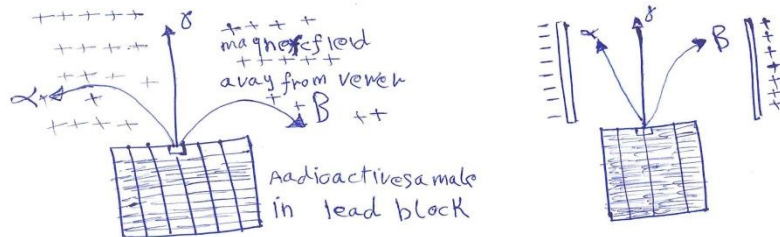 γ
magnetfield
away from vewer
α
B
Aadioactivesamale
in lead block
α
γ
B